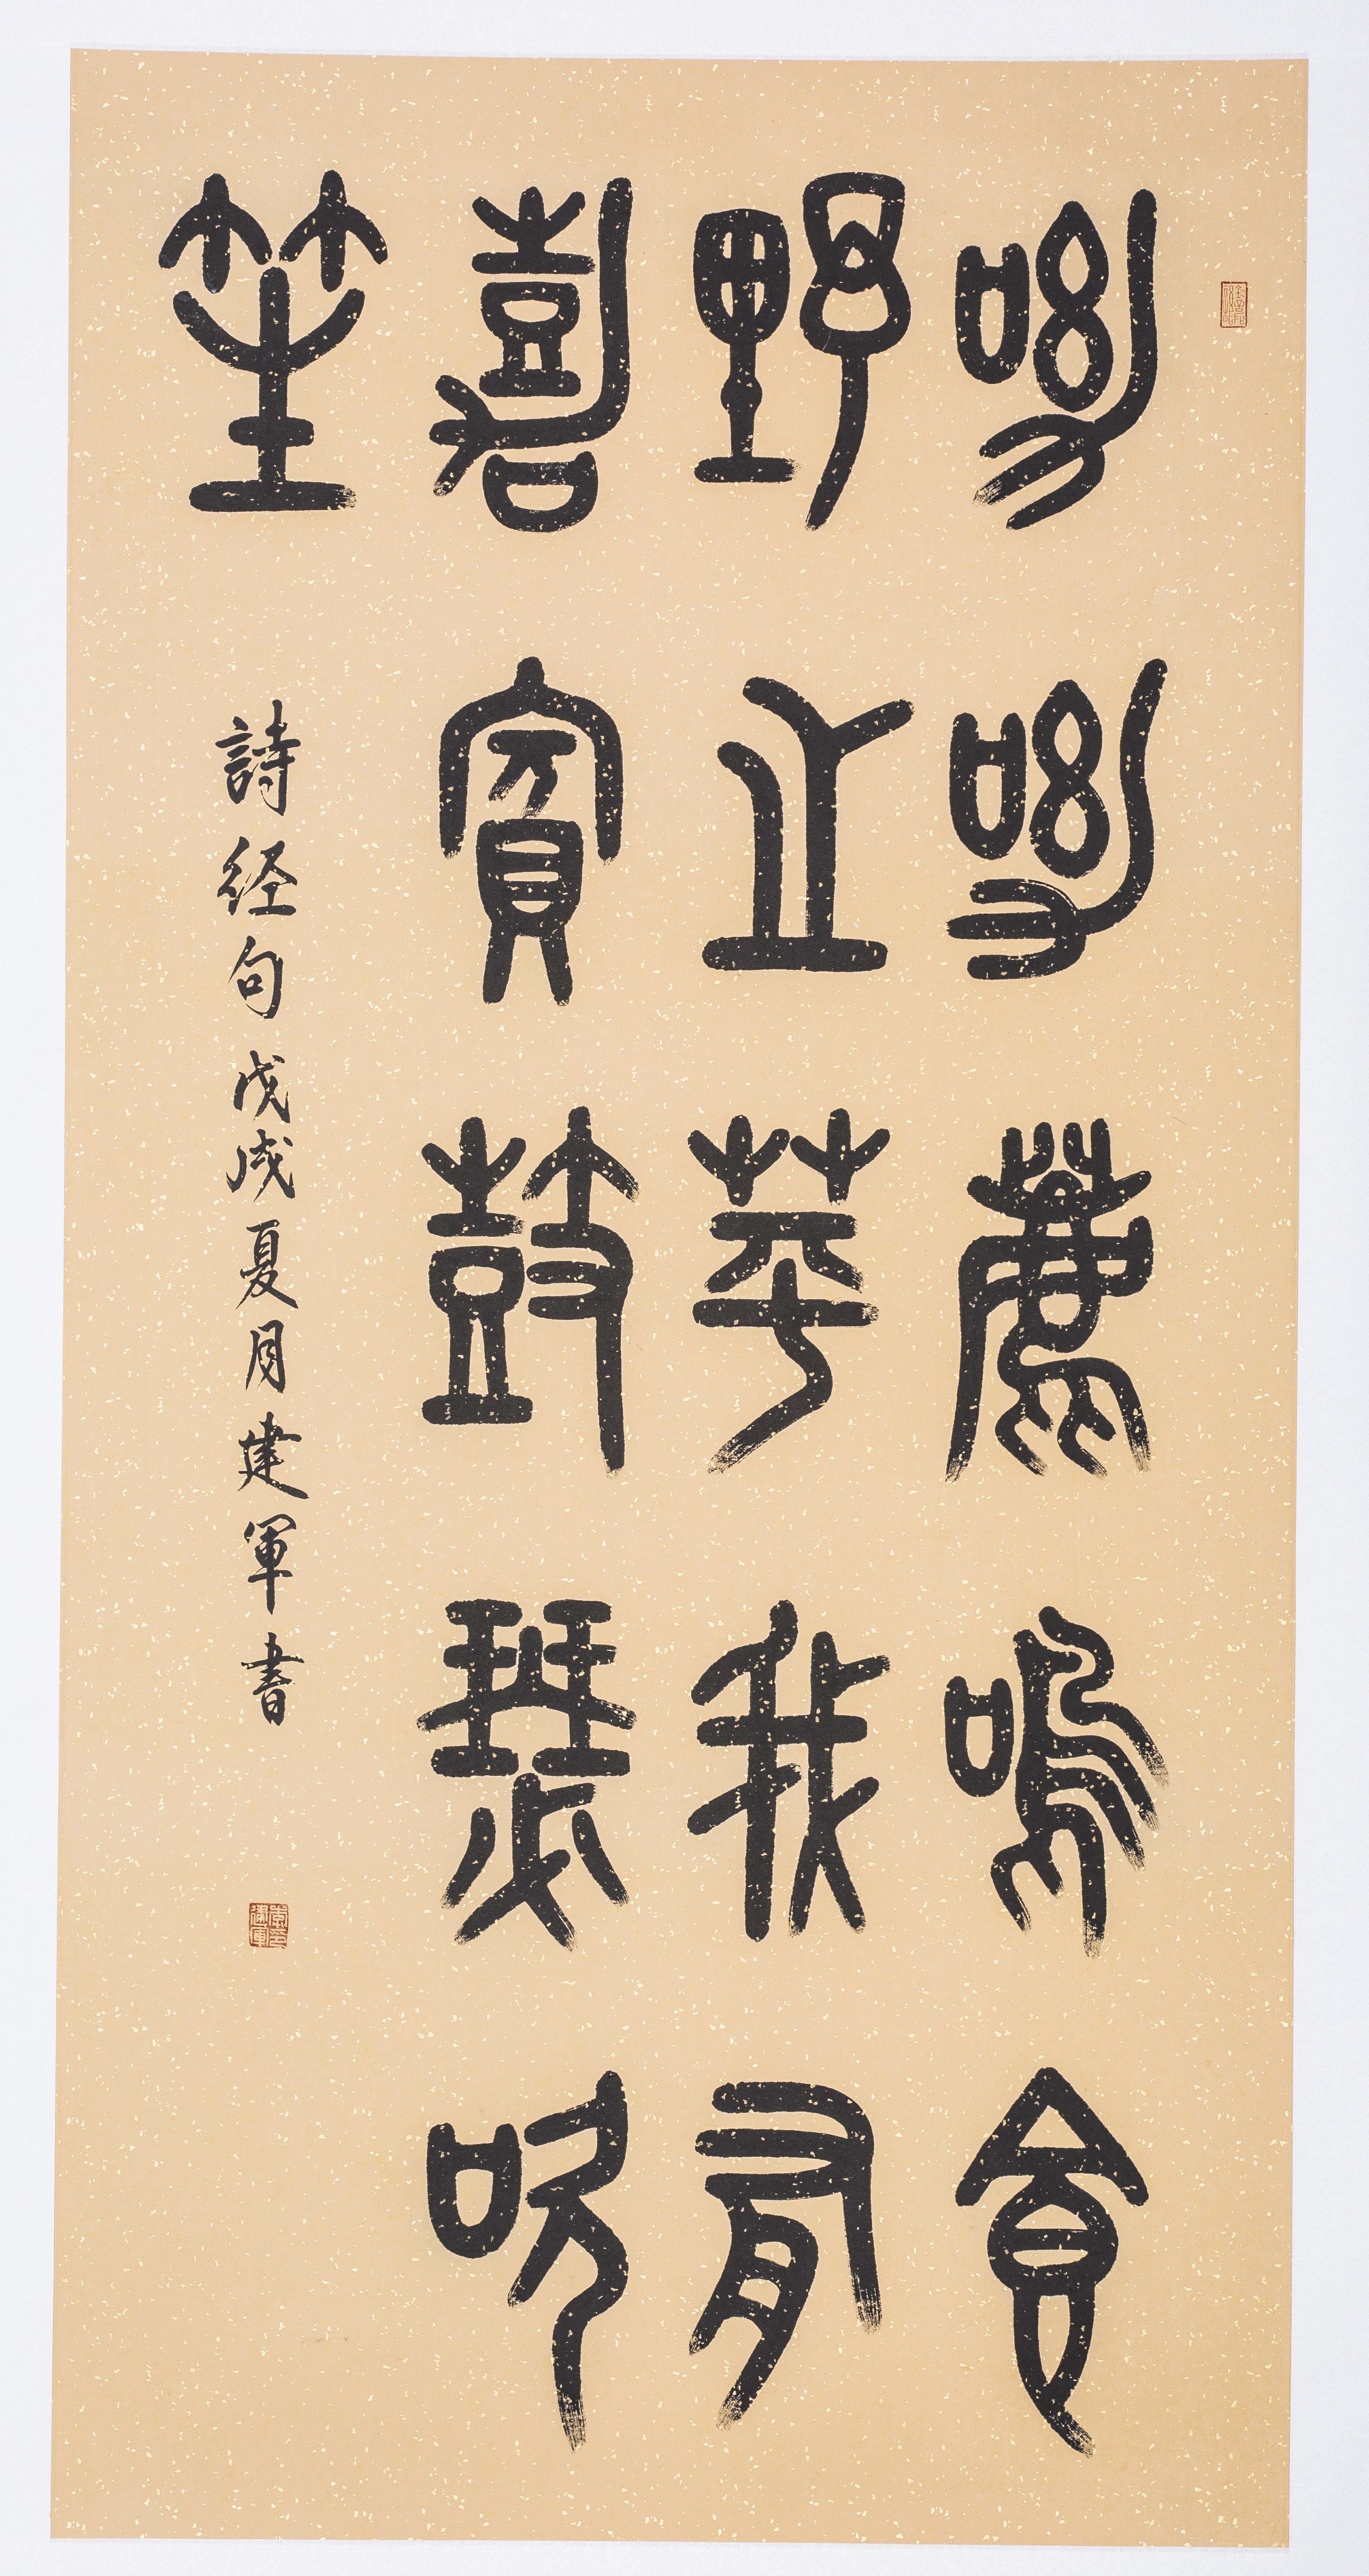 呦呦鹿鳴食
野之苹我有
嘉賓鼓瑟吹
笙
詩经句戊戌夏月建軍書